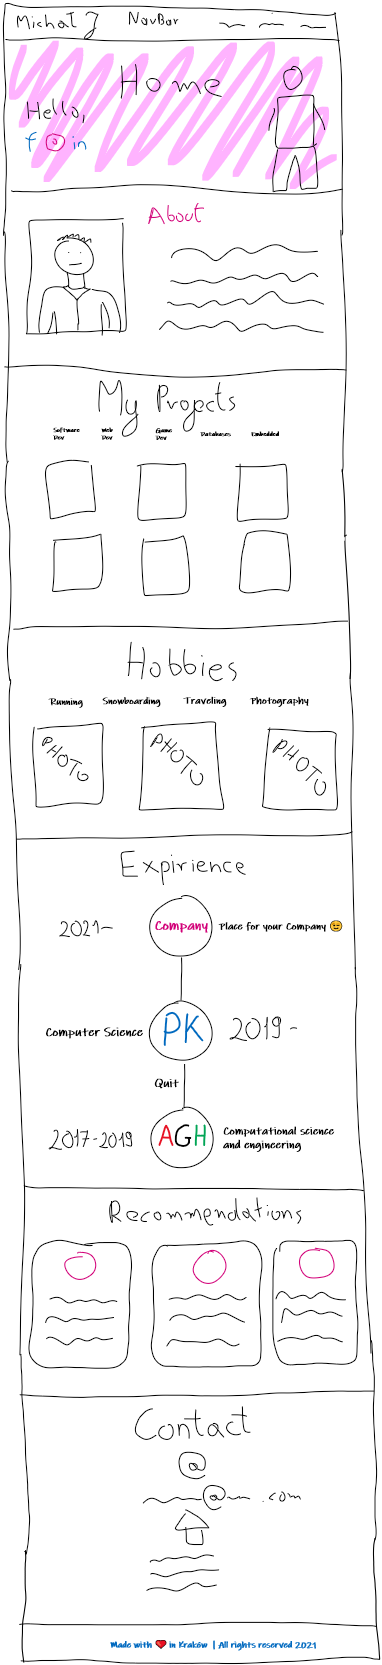 Michał J NavBar
Home
Hello,
f in
About
My Projects
Software Dev
Web Dev
Game Dev
Databases
Embedded
Hobbies
Running Snowboarding Traveling Photography
PHOTO PHOTO PHOTO
Expirience
2021- Company Place for your Company 😉
Computer Science PK 2019 -
Quit
2017-2019 AGH Computational science
and engineering
Recommendations
Contact
@
@ .com
Made with ❤ in Kraków | All rights reserved 2021